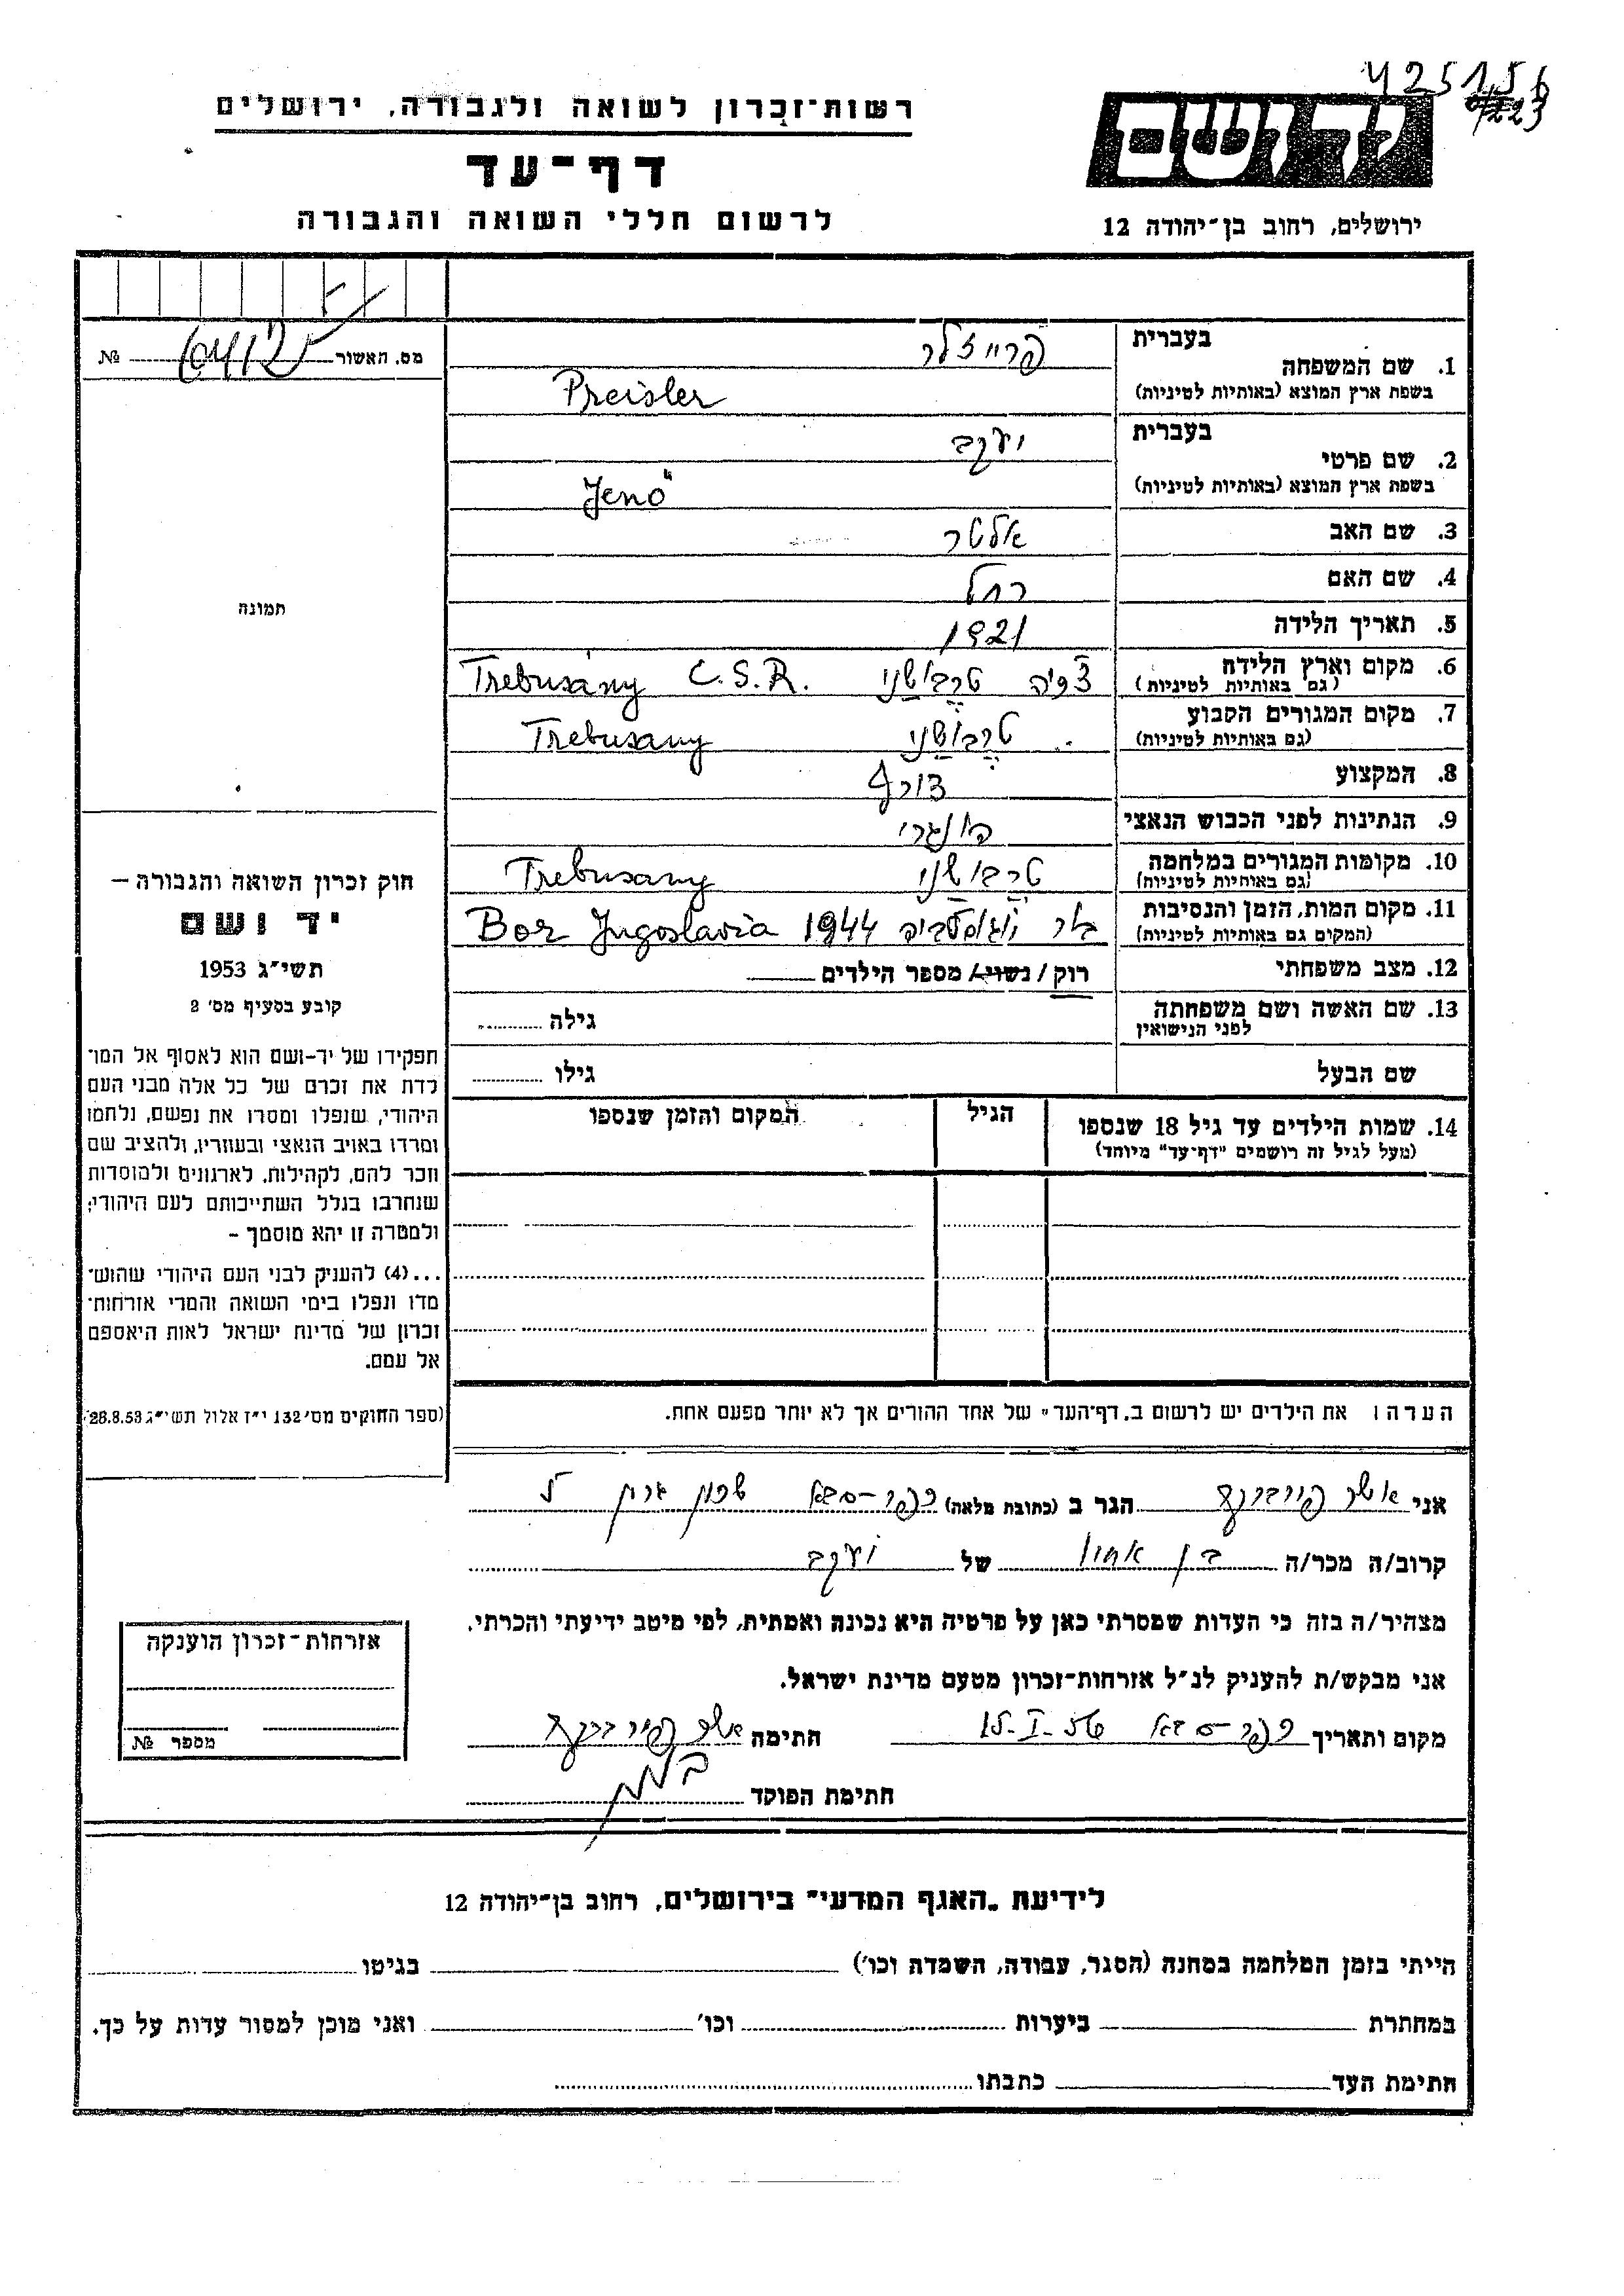 425156
רשות־זכרון לשואה ולגבורה, ירושלים
9223
יד ושם
דף־עד
לרשום חללי השואה והגבורה
ירושלים, רחוב בן־יהודה 12
מס. האשור № 
1. שם המשפחה בעברית פרייזלר
בשפת ארץ המוצא (באותיות לטיניות) Preisler
2. שם פרטי בעברית יעקב
בשפת ארץ המוצא (באותיות לטיניות) Jenő
3. שם האב אלטר
4. שם האם רחל
5. תאריך הלידה 1921
6. מקום וארץ הלידה (גם באותיות לטיניות) צ'כיה טרבושני Trebusany C.S.R.
7. מקום המגורים הקבוע (גם באותיות לטיניות) טרבושני Trebusany
8. המקצוע צורף
9. הנתינות לפני הכבוש הנאצי הונגרי
10. מקומות המגורים במלחמה (גם באותיות לטיניות) טרבושני Trebusany
11. מקום המות, הזמן והנסיבות (המקום גם באותיות לטיניות) בור יוגוסלביה 1944 Bor Jugoslavia
12. מצב משפחתי רוק / נשוי / מספר הילדים
13. שם האשה ושם משפחתה לפני הנישואין גילה
שם הבעל גילו
14. שמות הילדים עד גיל 18 שנספו הגיל המקום והזמן שנספו
(מעל לגיל זה רושמים "דף־עד" מיוחד)
הערה: את הילדים יש לרשום ב"דף־העד" של אחד ההורים אך לא יותר מפעם אחת.
תמונה
חוק זכרון השואה והגבורה —
יד ושם
תשי"ג 1953
קובע בסעיף מס' 2
תפקידו של יד-ושם הוא לאסוף אל המו־
לדת את זכרם של כל אלה מבני העם
היהודי, שנפלו ומסרו את נפשם, נלחמו
ומרדו באויב הנאצי ובעוזריו, ולהציב שם
וזכר להם, לקהילות, לארגונים ולמוסדות
שנחרבו בגלל השתייכותם לעם היהודי;
ולמטרה זו יהא מוסמך –
...(4) להעניק לבני העם היהודי שהוש־
מדו ונפלו בימי השואה והמרי אזרחות־
זכרון של מדינת ישראל לאות היאספם
אל עמם.
(ספר החוקים מס' 132 י"ז אלול תשי"ג 28.8.53)
אני אשר הגר ב (כתובת מלאה) כפר-סבא שכון
קרוב/ה מכר/ה בן אחות של יעקב
מצהיר/ה בזה כי העדות שמסרתי כאן על פרטיה היא נכונה ואמתית, לפי מיטב ידיעתי והכרתי.
אני מבקש/ת להעניק לנ"ל אזרחות-זכרון מטעם מדינת ישראל.
מקום ותאריך כפר-סבא 15-I-56 חתימה אשר
חתימת הפוקד
אזרחות-זכרון הוענקה
מספר №
לידיעת "האגף המדעי" בירושלים, רחוב בן־יהודה 12
הייתי בזמן המלחמה במחנה (הסגר, עבודה, השמדת וכו') בגיטו
במחתרת ביערות וכו' ואני מוכן למסור עדות על כך.
חתימת העד כתבתו